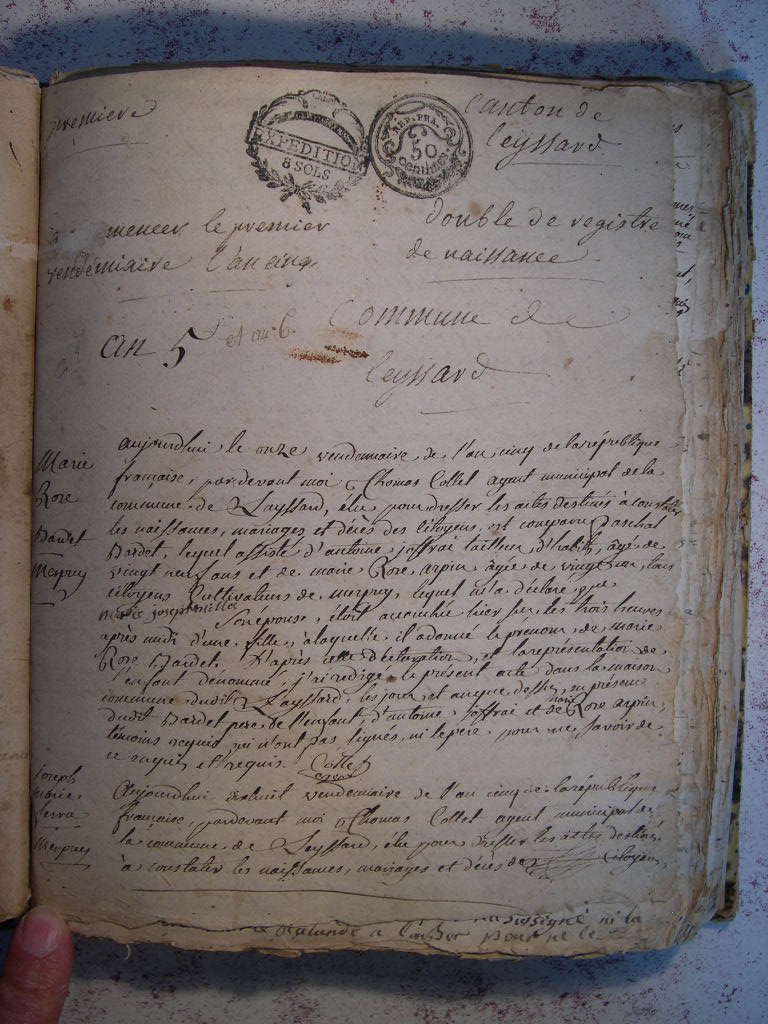 première
EXPEDITION
8 SOLS
REP. FRA.
50
centimes.
Canton de
Leyssard
mencer le premier
vendémiaire l'an cinq
double de registre
de naissance
an 5 et an 6.
Commune de
Leyssard
Marie
Rose
Dardet
Mespuy
aujourdhui le onze vendemiaire de l'an cinq de la république
française, pardevant moi Thomas Collet agent municipal de la
commune de Layssard, élu pour dresser les actes destinés à constater
les naissances, mariages et décès des citoyens, est comparu Paschal
Dardet, lequel assisté d'antoine joffrai tailleur d'habits, âgé de
vingt neuf ans et de marie Rose arpin âgée de vingt un, tous
citoyens Cultivateurs de merpuy, lequel m'a déclaré que
marie joseph millet son épouse, étoit accouchée hier sur les trois heures
après midi d'une fille, à laquelle il a donné le prénom de marie
Rose Dardet, D'après cette déclaration, et la représentation de
l'enfant dénommé, j'ai rédigé le présent acte dans la maison
commune dudit Layssard, les jour et an que dessus, en présence
dudit Dardet pere de l'enfant, d'antoine joffrai et de marie Rose arpin,
témoins requis, qui n'ont pas signés, ni le père pour ne savoir de
ce enquis et requis. Collet
agent
joseph
marie
Serra
Merpuy
Aujourdhui vendemiaire de l'an cinq de la république
française, pardevant moi Thomas Collet agent municipal de
la commune de Leyssard, élu pour dresser les actes destinés
à constater les naissances, mariages et décès des citoyens
signé ni la
pour ne le